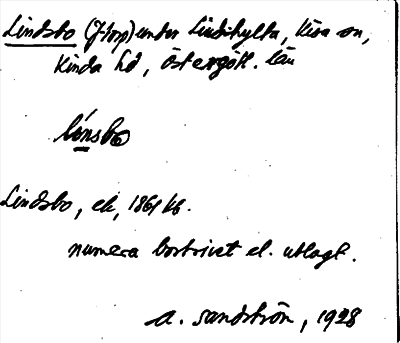 Lindsbo (f. torp) under Lindshylta, Kisa sn,
Kinda hd, Östergötl. län
línsbo
Lindsbo, ek, 1861 kb.
numera bortrivet el. utlagt.
A. Sandström, 1928